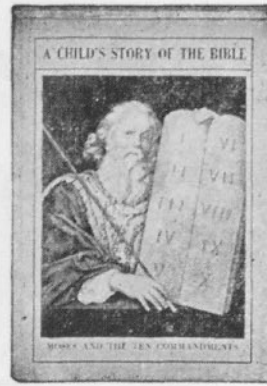 A CHILD'S STORY OF THE BIBLE
I VI
II VII
III VIII
IV IX
V X
MOSES AND THE TEN COMMANDMENTS